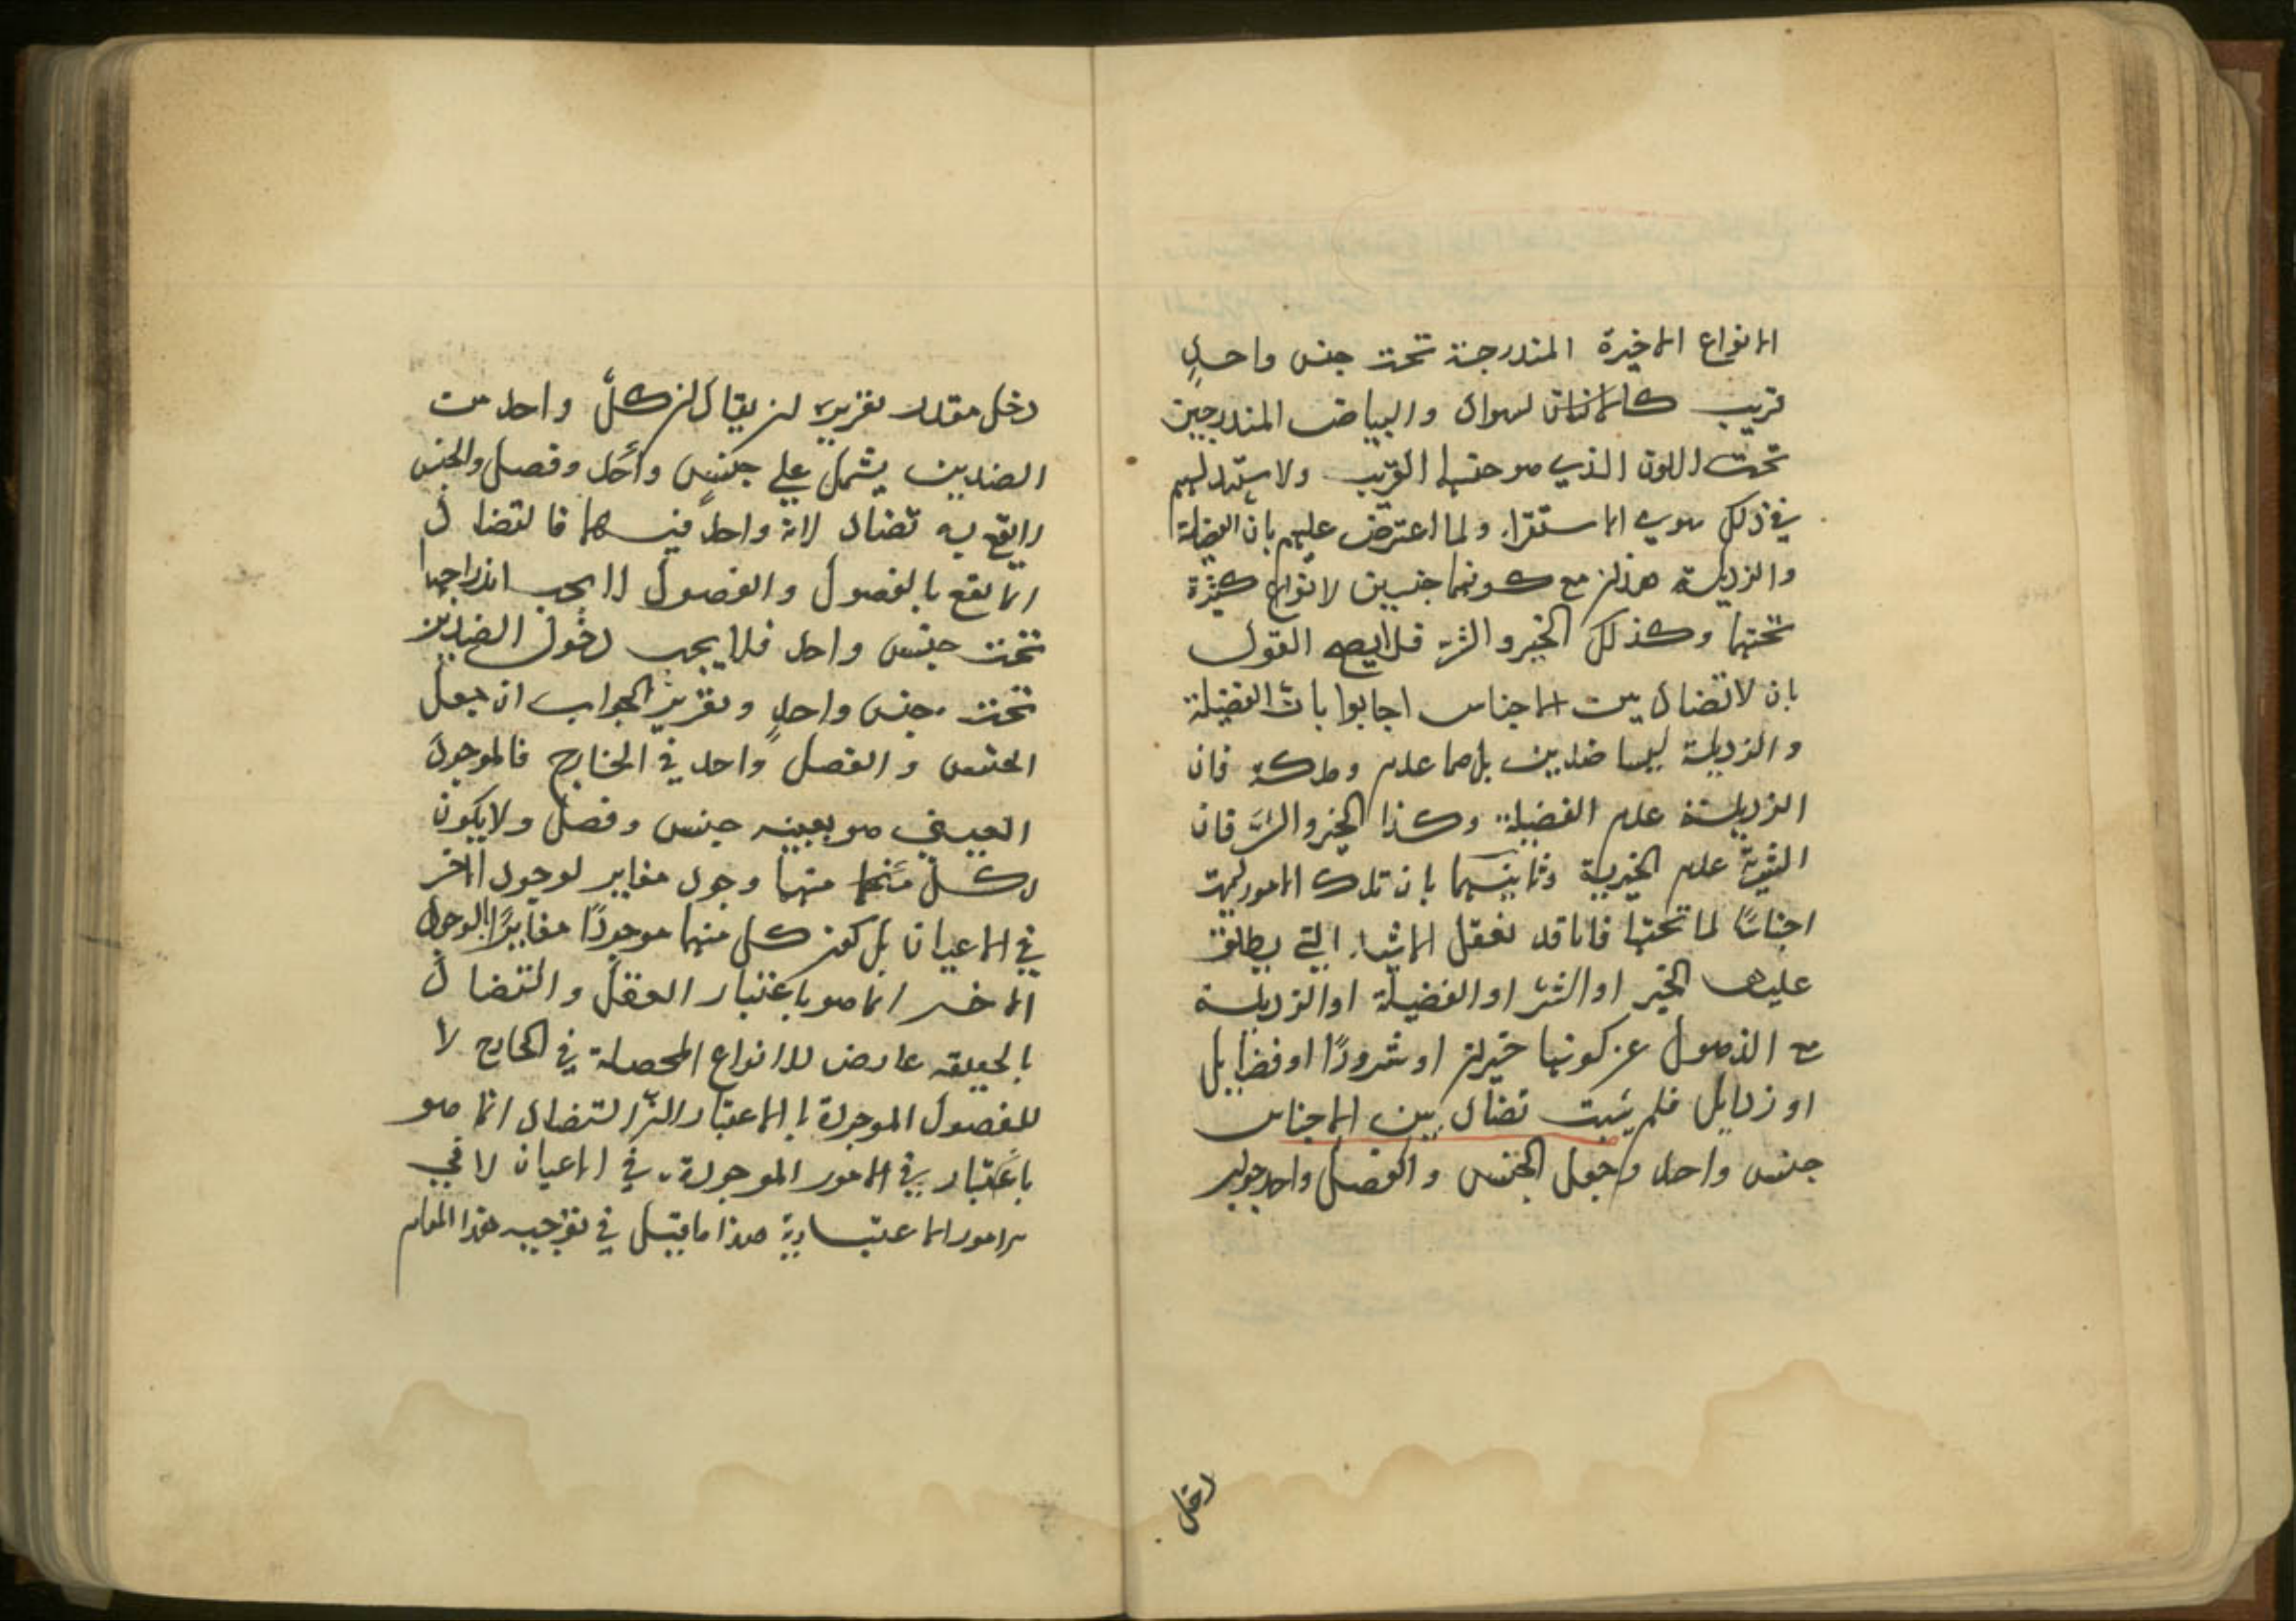 الانواع الاخيرة المندرجة تحت جنس واحدٍ
قريب كالسواد والبياض المندرجين
تحت اللون الذي هو جنسها القريب ولا سند لهم
في ذلك سوى الاستقراء ولما اعترض عليهم بان الفضيلة
والرذيلة ضدان مع كونهما جنسين لانواع كثيرة
تحتهما وكذلك الخير والشر فلا يصح القول
بان لا تضاد بين الاجناس اجابوا بان الفضيلة
والرذيلة ليسا ضدين بل هما عدم وملكة فان
الرذيلة عدم الفضيلة وكذا الخير والشر فان
الشرية عدم الخيرية وثانيهما بان تلك الامور ليست
اجناسًا لما تحتها فانا قد نعقل الاشياء التي يطلق
عليها الخير او الشر او الفضيلة او الرذيلة
مع الذهول عن كونها خيرات او شرورًا او فضايل
او رذايل فلم يثبت تضاد بين الاجناس
جنس واحد وجعل الجنس والفصل واحد جواب
دخل
دخل مقدر تقريره ان يقال ان كل واحد من
الضدين يشمل على جنس واحد وفصل والجنس
لا يقع به تضاد لانه واحد فيهما فالتضاد
انما يقع بالفصول والفصول لا يجب اندراجها
تحت جنس واحد فلا يجب دخول الضدين
تحت جنس واحدٍ وتقرير الجواب ان جعل
الجنس والفصل واحد في الخارج فالموجود
العيني هو بعينه جنس وفصل ولا يكون
لكل منهما وجود مغاير لوجود الاخر
في الاعيان بل كون كل منهما موجودًا مغايرًا لوجود
الاخر انما هو باعتبار العقل والتضاد
بالحقيقة عارض للانواع المحصلة في الخارج لا
للفصول الموجودة بالاعتبار التضاد انما هو
باعتبار في الامور الموجودة في الاعيان لا في
الامور الاعتبارية هذا ما قيل في توجيه هذا المقام